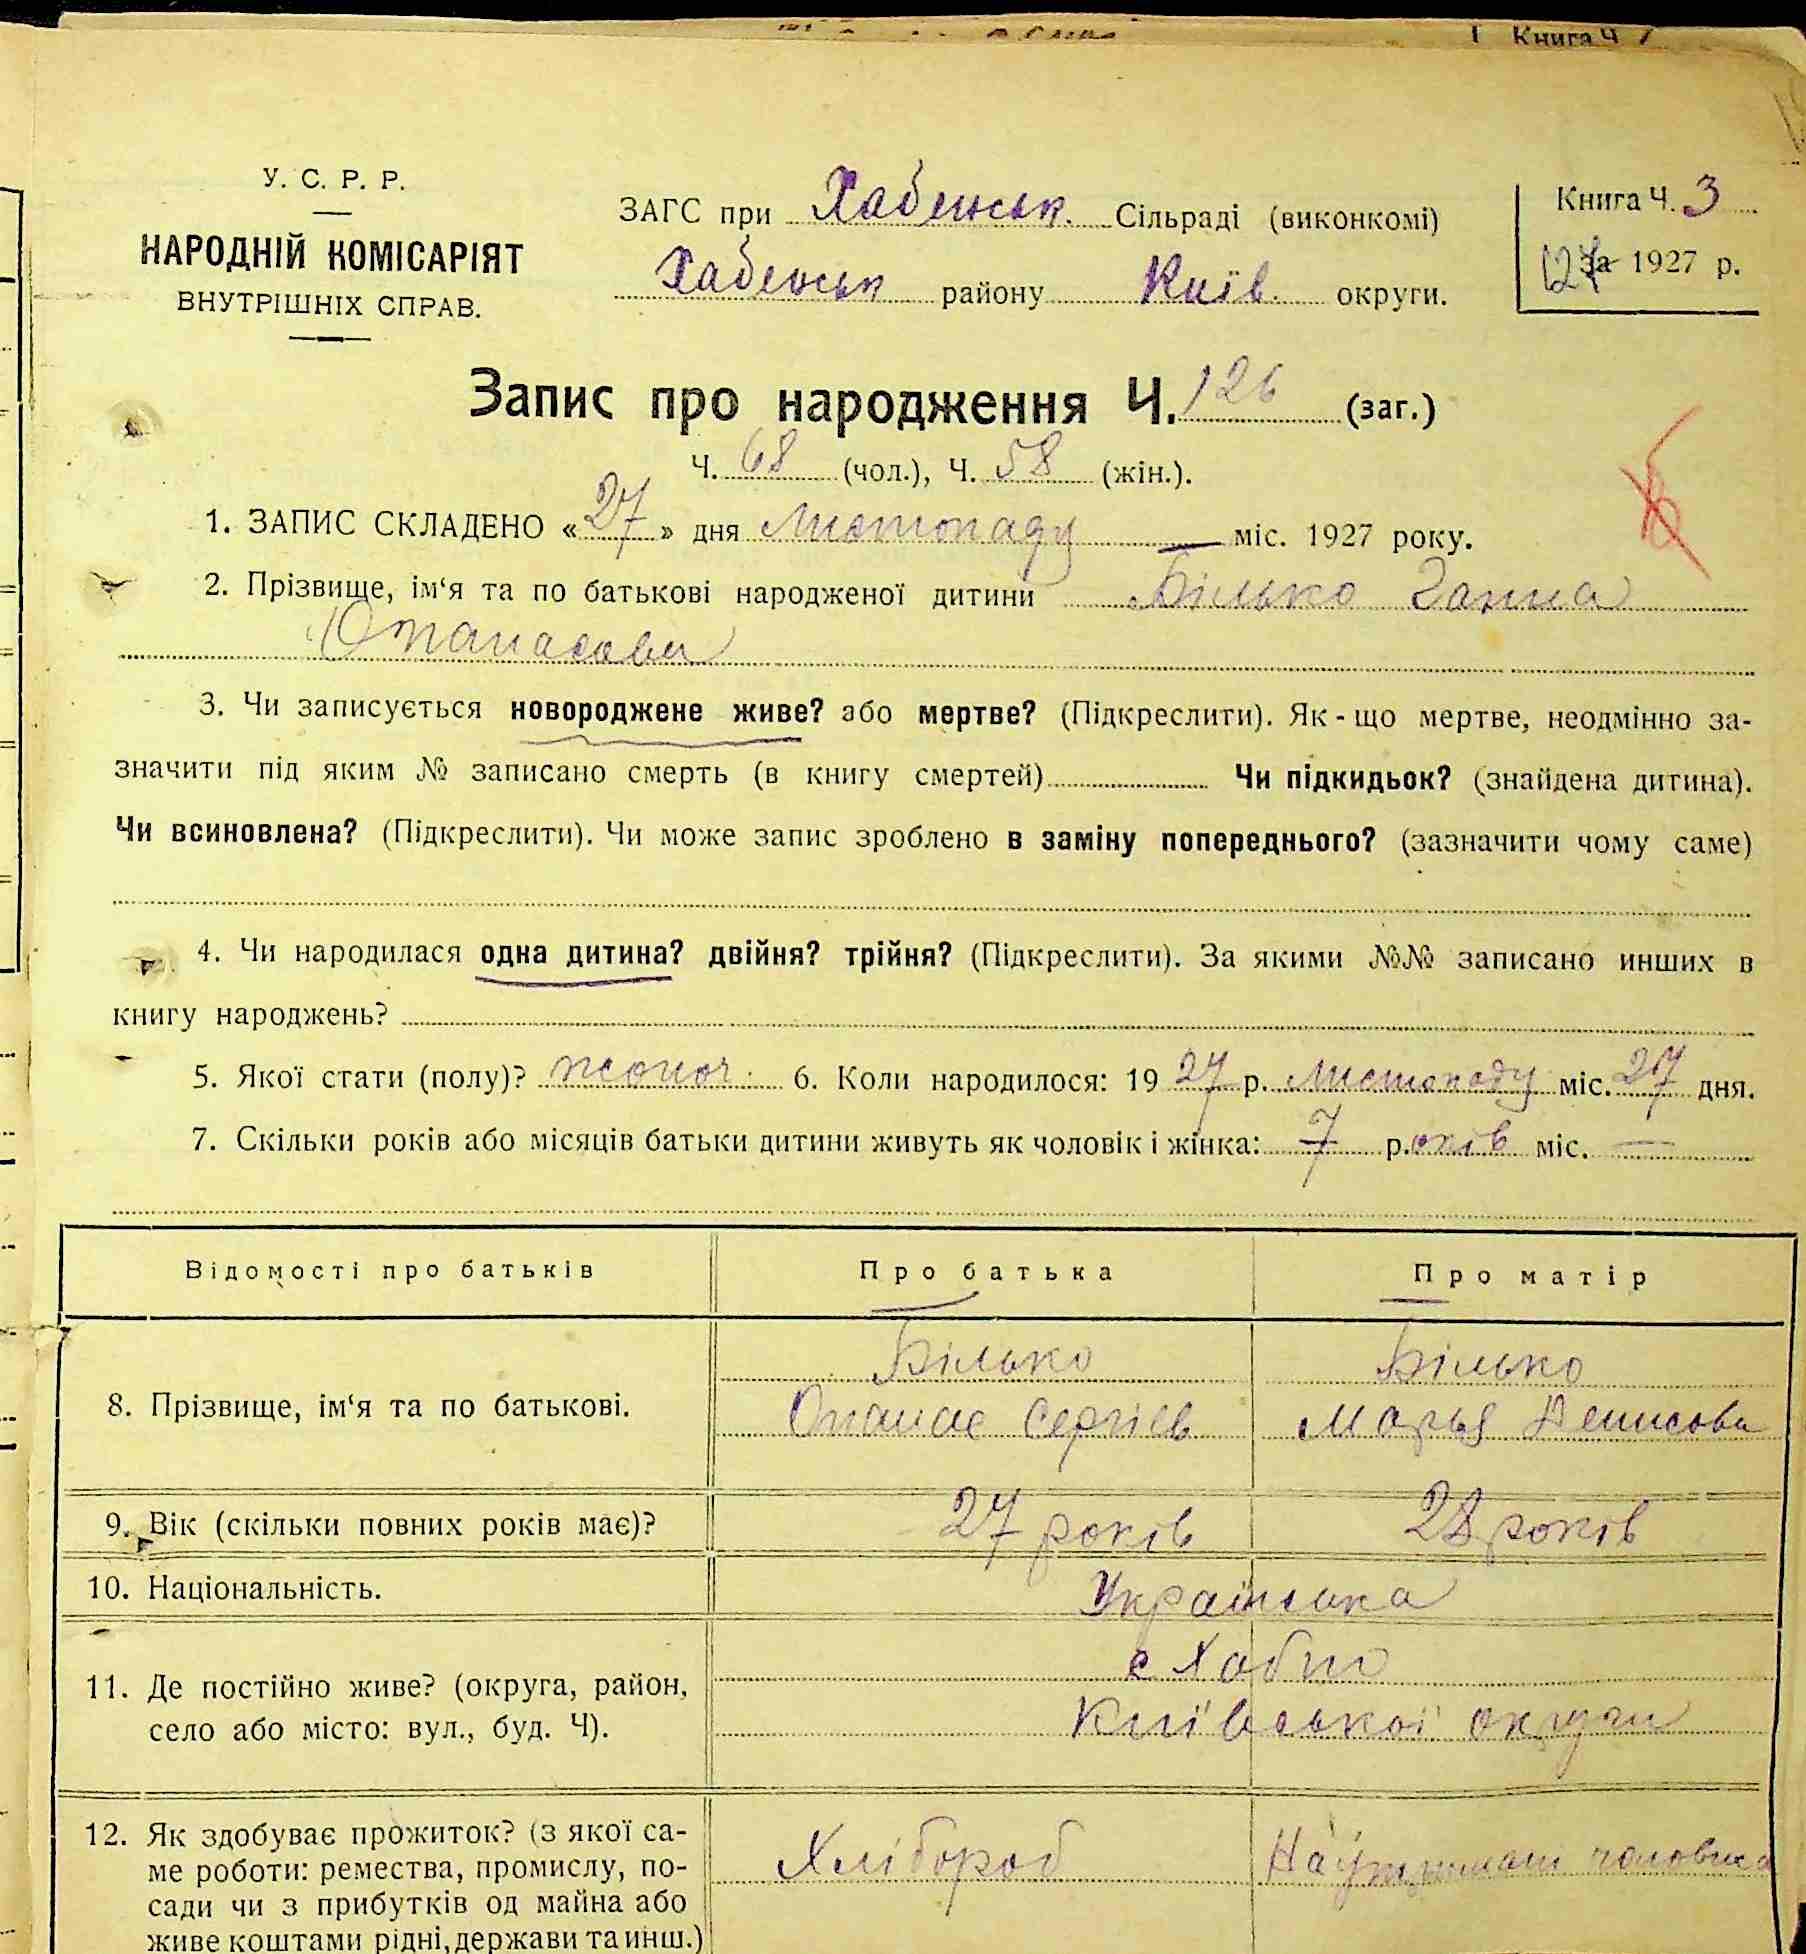 Книга Ч
У. С. Р. Р.
НАРОДНІЙ КОМІСАРІЯТ
ВНУТРІШНІХ СПРАВ.
ЗАГС при Хабенськ. Сільраді (виконкомі)
Хабенськ району Київ. округи.
Книга Ч. 3
за 1927 р.
Запис про народження Ч. 126 (заг.)
Ч. 68 (чол.), Ч. 58 (жін.).
1. ЗАПИС СКЛАДЕНО «27» дня Листопаду міс. 1927 року.
2. Прізвище, ім‘я та по батькові народженої дитини Білько Ганна
Опанасови
3. Чи записується новороджене живе? або мертве? (Підкреслити). Як-що мертве, неодмінно за-
значити під яким № записано смерть (в книгу смертей) Чи підкидьок? (знайдена дитина).
Чи всиновлена? (Підкреслити). Чи може запис зроблено в заміну попереднього? (зазначити чому саме)
4. Чи народилася одна дитина? двійня? трійня? (Підкреслити). За якими №№ записано инших в
книгу народжень?
5. Якої стати (полу)? жоноч. 6. Коли народилося: 1927 р. Листопаду міс. 27 дня.
7. Скільки років або місяців батьки дитини живуть як чоловік і жінка: 7 р.оків міс. —
Відомості про батьків Про батька Про матір
8. Прізвище, ім‘я та по батькові.
Білько Білько
Опанас Сергіев Марья Денисова
9. Вік (скільки повних років має)? 27 років 28 років
10. Національність. Українська
11. Де постійно живе? (округа, район,
село або місто: вул., буд. Ч).
с Хабно
Київської округи
12. Як здобуває прожиток? (з якої са-
ме роботи: ремества, промислу, по-
сади чи з прибутків од майна або
живе коштами рідні, держави та инш.)
Хлібороб На утримані чоловіка